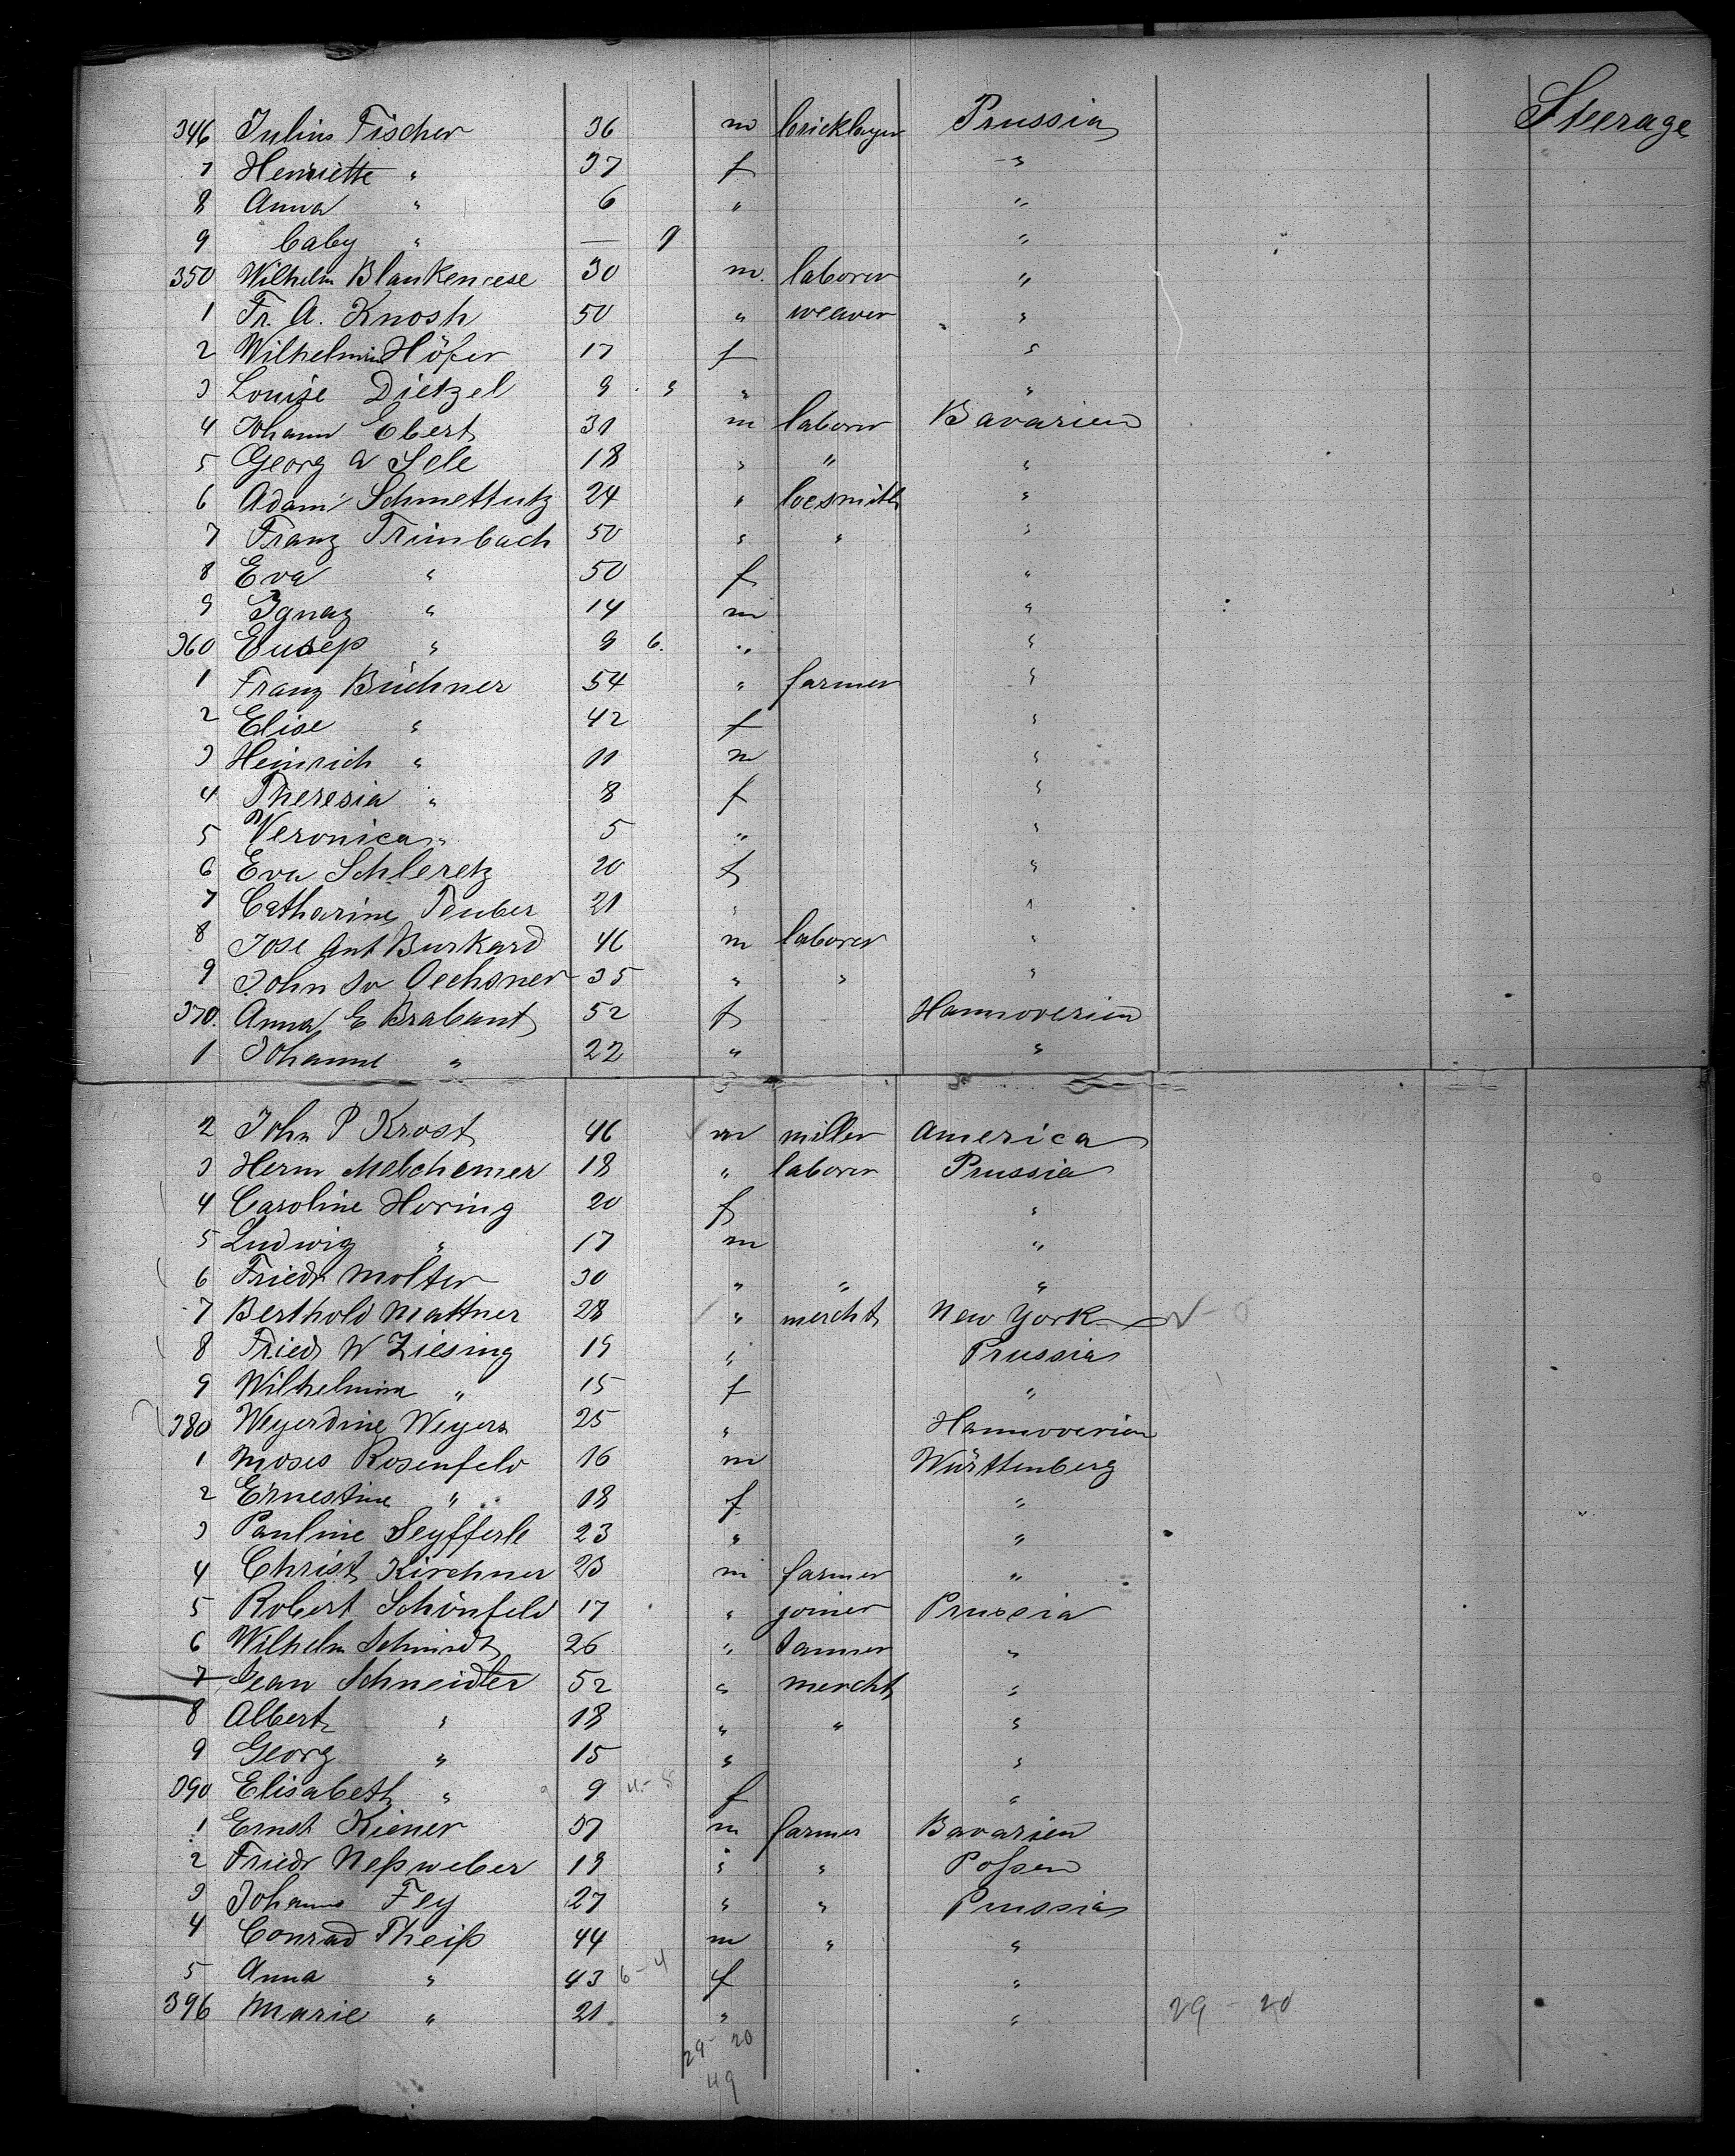 Steerage
346 Julius Fischer 36 m bricklayer Prussia
7 Henriette " 37 f "
8 Anna " 6 " "
9 baby " — 9 "
350 Wilhelm Blankenese 30 m. laborer "
1 Fr. A. Knosh 50 " weaver "
2 Wilhelmin Höfer 17 f "
3 Louise Dietzel 9 " " "
4 Johann Ebert 31 m laborer Bavarien
5 Georg A Sele 18 " " "
6 Adam Schmettutz 24 " locsmith "
7 Franz Trimbach 50 " " "
8 Eva " 50 f "
9 Ignaz " 14 m "
360 Eusep " 9 6. " "
1 Franz Büchner 54 " farmer "
2 Elise " 42 f "
3 Heinrich " 11 m "
4 Theresia " 8 f "
5 Veronica " 5 " "
6 Eva Schleretz 20 f "
7 Catharine Teuber 21 " "
8 Jose Ant Burkard 46 m laborer "
9 John Oechsner 35 " " "
370. Anna E Brabant 52 f Hannoverien
1 Johanne " 22 " "
2 John P Krost 46 m miller America
3 Herm Melchemer 18 " laborer Prussia
4 Caroline Horing 20 f "
5 Ludwig " 17 m "
6 Friedr Molter 30 " " "
7 Berthold Mattner 28 " mercht New York
8 Friedr W Ziesing 19 " Prussia
9 Wilhelmina " 15 f "
380 Weyerdine Weyers 25 " Hannoverien
1 Moses Rosenfeld 16 m Württenberg
2 Ernestine " 18 f "
3 Pauline Seyfferle 23 " "
4 Christ Kirchner 23 m farmer "
5 Robert Schönfeld 17 " joiner Prussia
6 Wilhelm Schmidt 26 " tanner "
7 Jean Schneider 52 " mercht "
8 Albert " 18 " " "
9 Georg " 15 " "
390 Elisabeth " 9 4-5 f "
1 Ernst Kiener 37 m farmer Bavarien
2 Friedr Neßweber 19 " " Poßen
3 Johann Fey 27 " " Prussia
4 Conrad Theiß 44 m " "
5 Anna " 43 6-4 f "
396 Marie " 21 " " 29 - 20
29 - 20
49